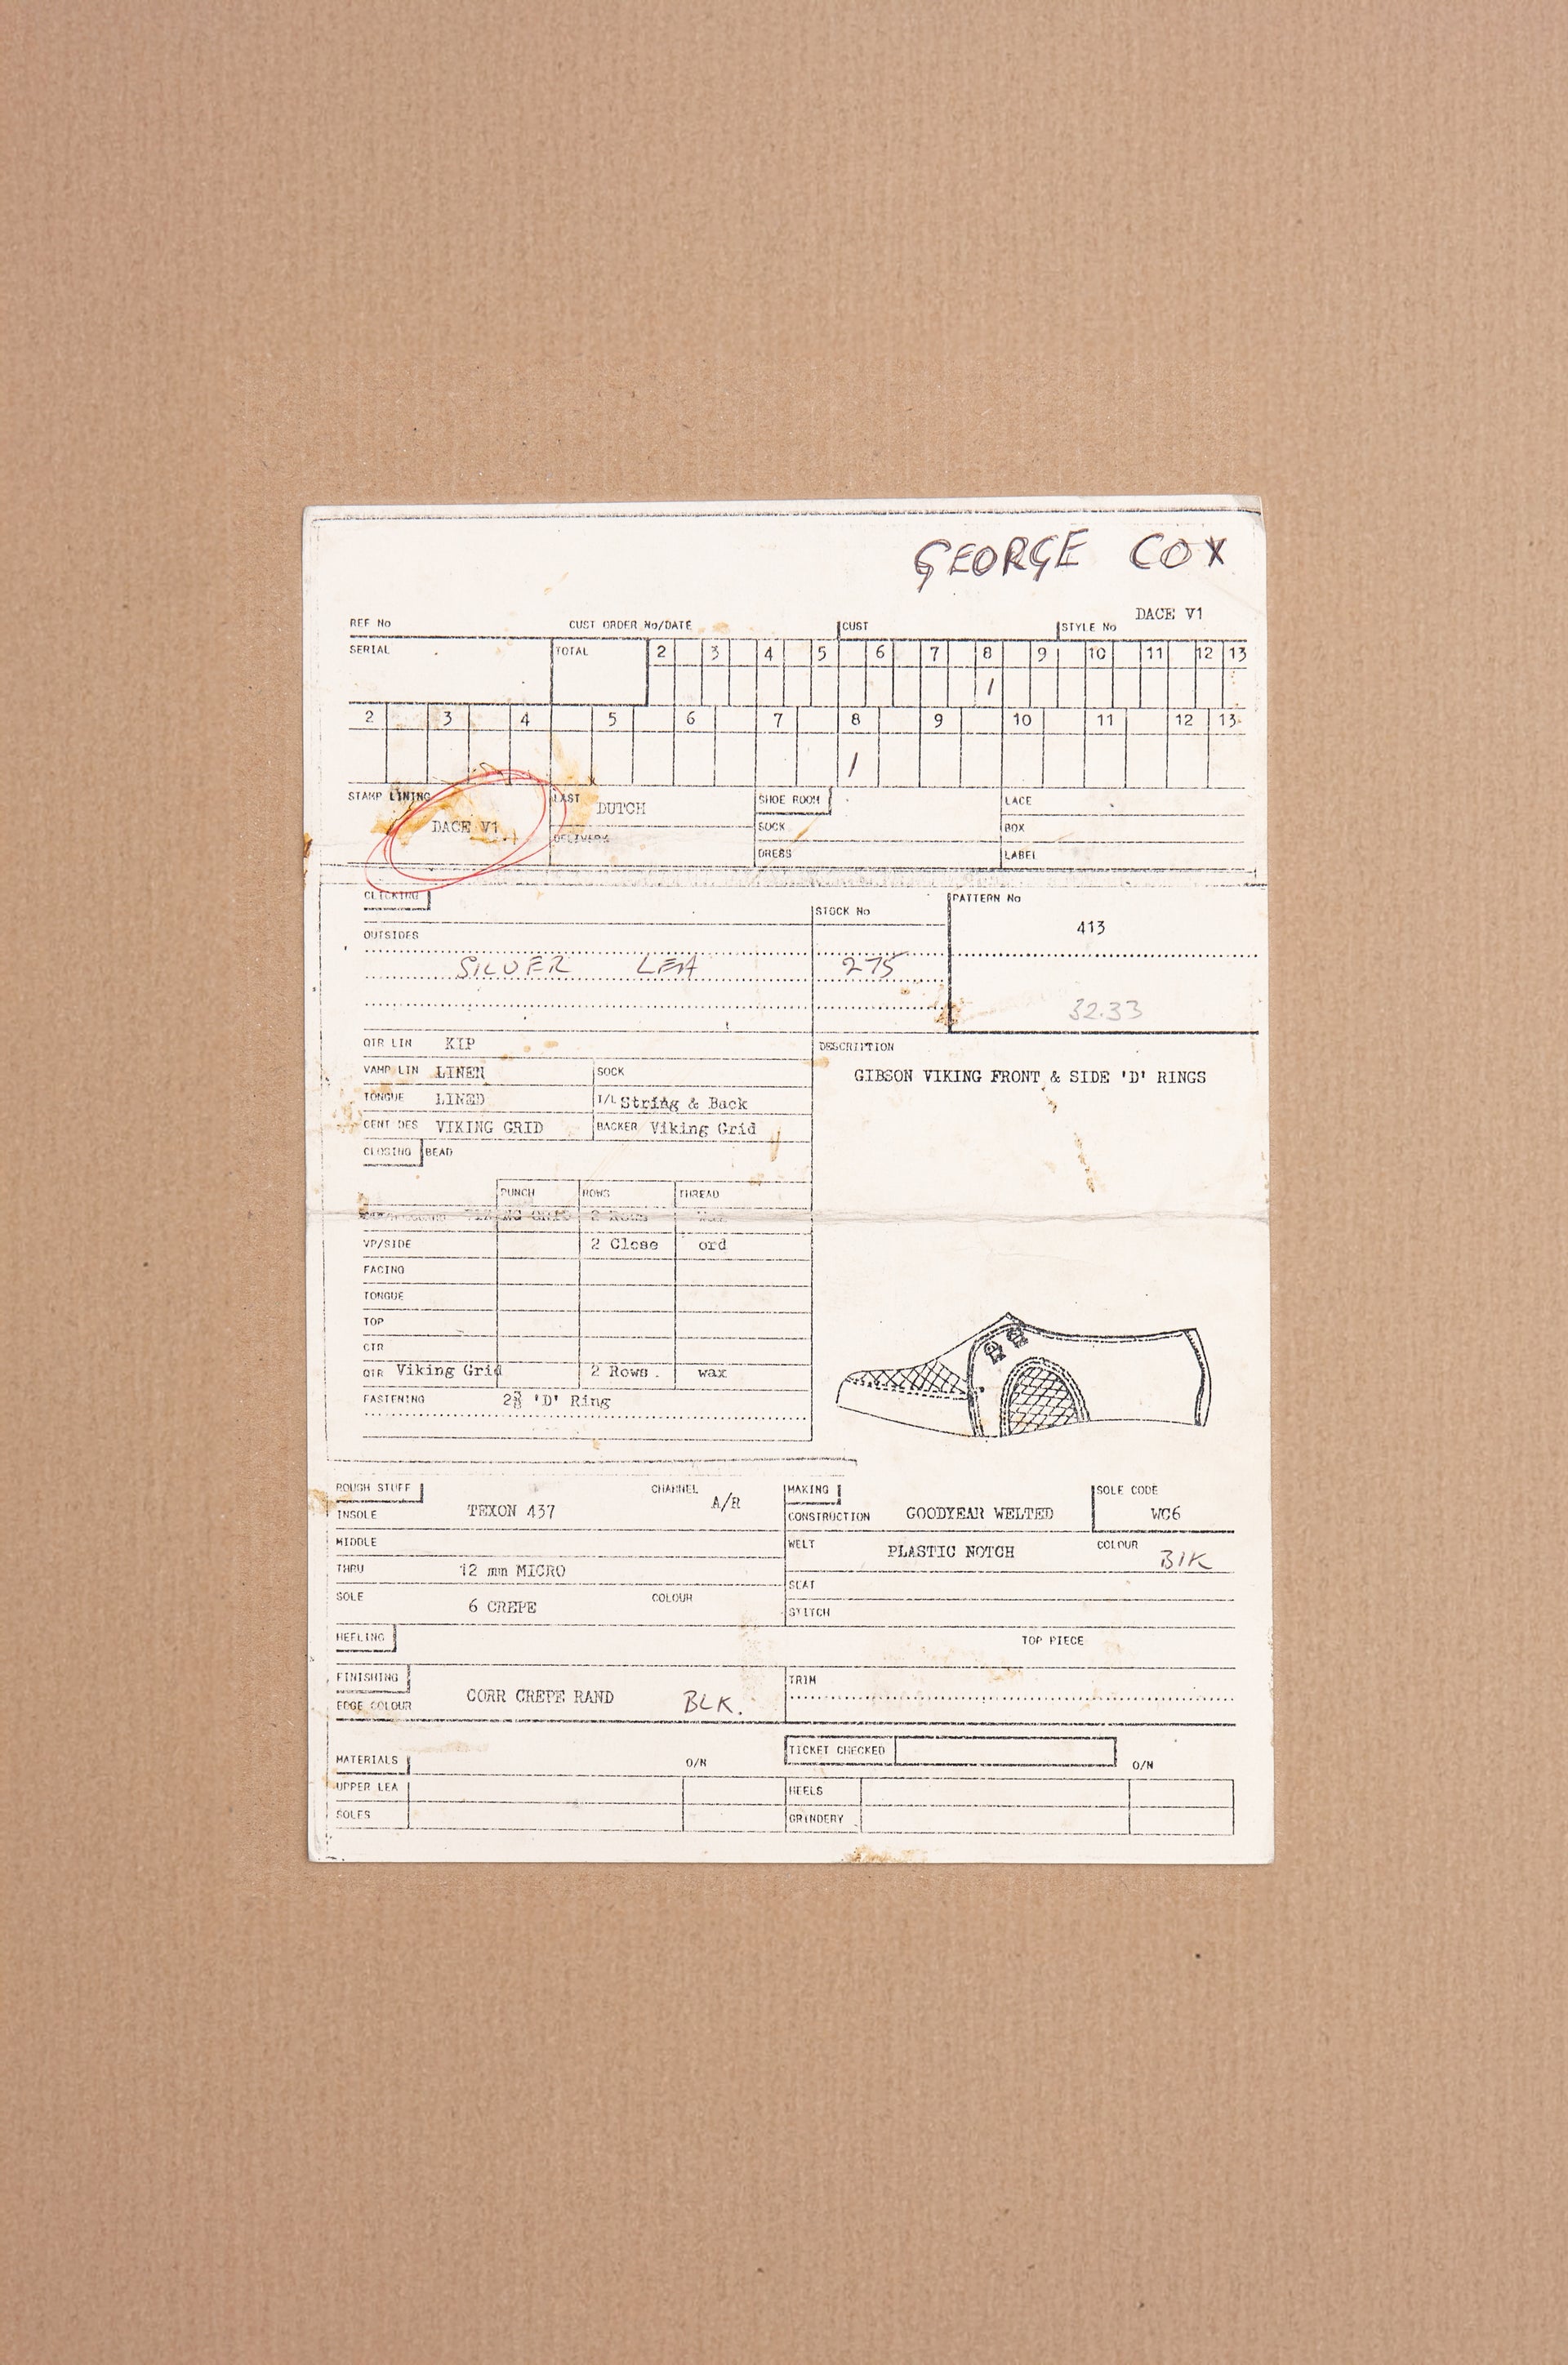 GEORGE COX
DACE V1
REF No CUST ORDER No/DATE CUST STYLE No
SERIAL TOTAL 2 3 4 5 6 7 8 9 10 11 12 13
/
2 3 4 5 6 7 8 9 10 11 12 13
/
STAMP LINING LAST DUTCH SHOE ROOM LACE
DACE V1 DELIVERY SOCK BOX
DRESS LABEL
CLICKING STOCK No PATTERN No
OUTSIDES 413
SILVER LEA 275
32.33
QTR LIN KIP DESCRIPTION
VAMP LIN LINEN SOCK GIBSON VIKING FRONT & SIDE 'D' RINGS
TONGUE LINED T/L String & Back
CENT DES VIKING GRID BACKER Viking Grid
CLOSING BEAD
PUNCH ROWS THREAD
VIKING GRID 2 Rows Wax
VP/SIDE 2 Close ord
FACING
TONGUE
TOP
CTR
QTR Viking Grid 2 Rows. wax
FASTENING 2 'D' Ring
ROUGH STUFF CHANNEL A/R MAKING SOLE CODE
INSOLE TEXON 437 CONSTRUCTION GOODYEAR WELTED WC6
MIDDLE WELT PLASTIC NOTCH COLOUR Blk
THRU 12 mm MICRO SEAT
SOLE 6 CREPE COLOUR STITCH
HEELING TOP PIECE
FINISHING TRIM
EDGE COLOUR CORR CREPE RAND BLK.
MATERIALS O/N TICKET CHECKED O/N
UPPER LEA HEELS
SOLES GRINDERY